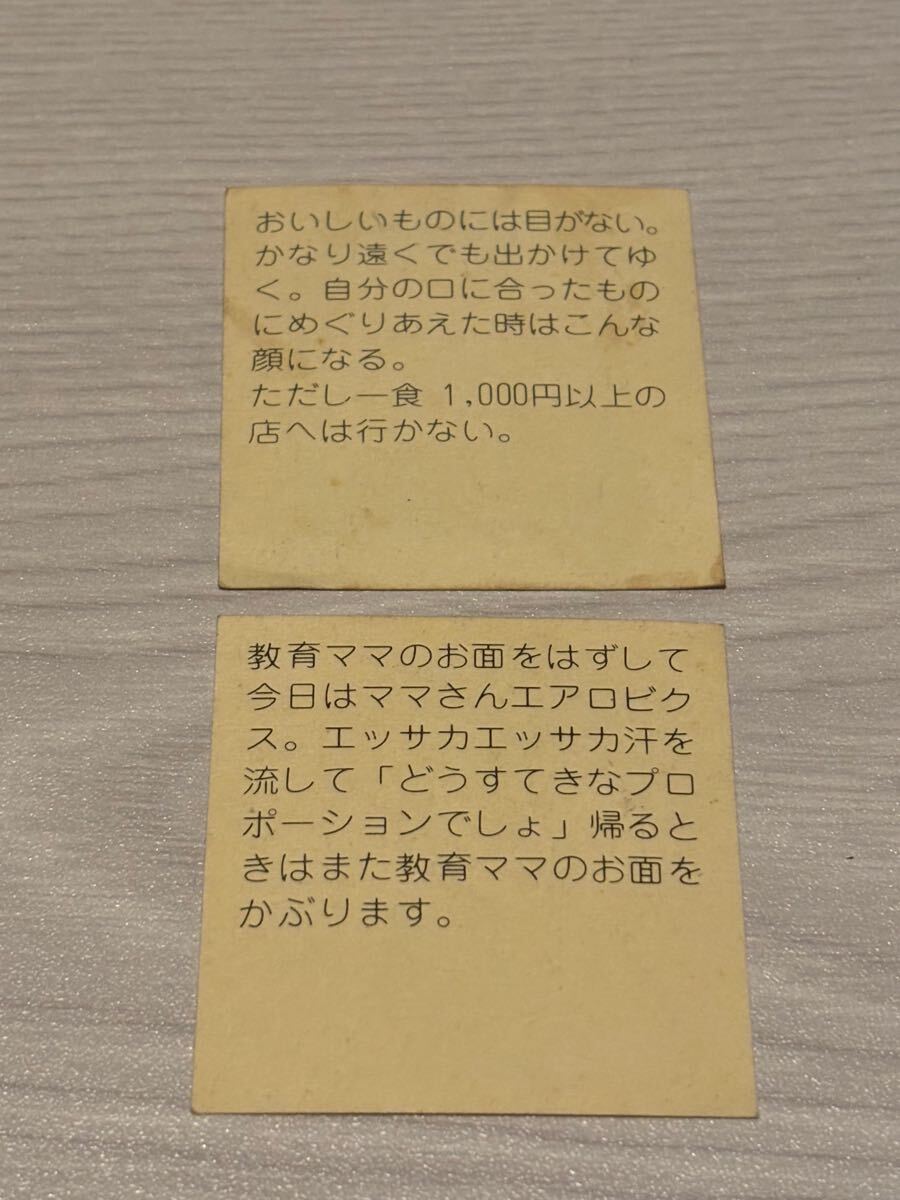 おいしいものには目がない。
かなり遠くでも出かけてゆ
く。自分の口に合ったもの
にめぐりあえた時はこんな
顔になる。
ただし一食 1,000円以上の
店へは行かない。
教育ママのお面をはずして
今日はママさんエアロビク
ス。エッサカエッサカ汗を
流して「どうすてきなプロ
ポーションでしょ」帰ると
きはまた教育ママのお面を
かぶります。